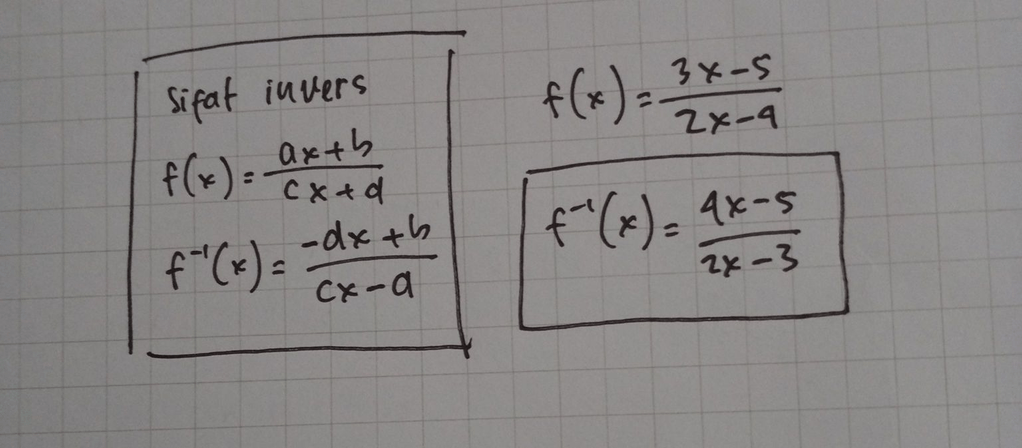 Sifat invers
f(x) = (ax+b)/(cx+d)
f⁻¹(x) = (-dx+b)/(cx-a)
f(x) = (3x-5)/(2x-4)
f⁻¹(x) = (4x-5)/(2x-3)